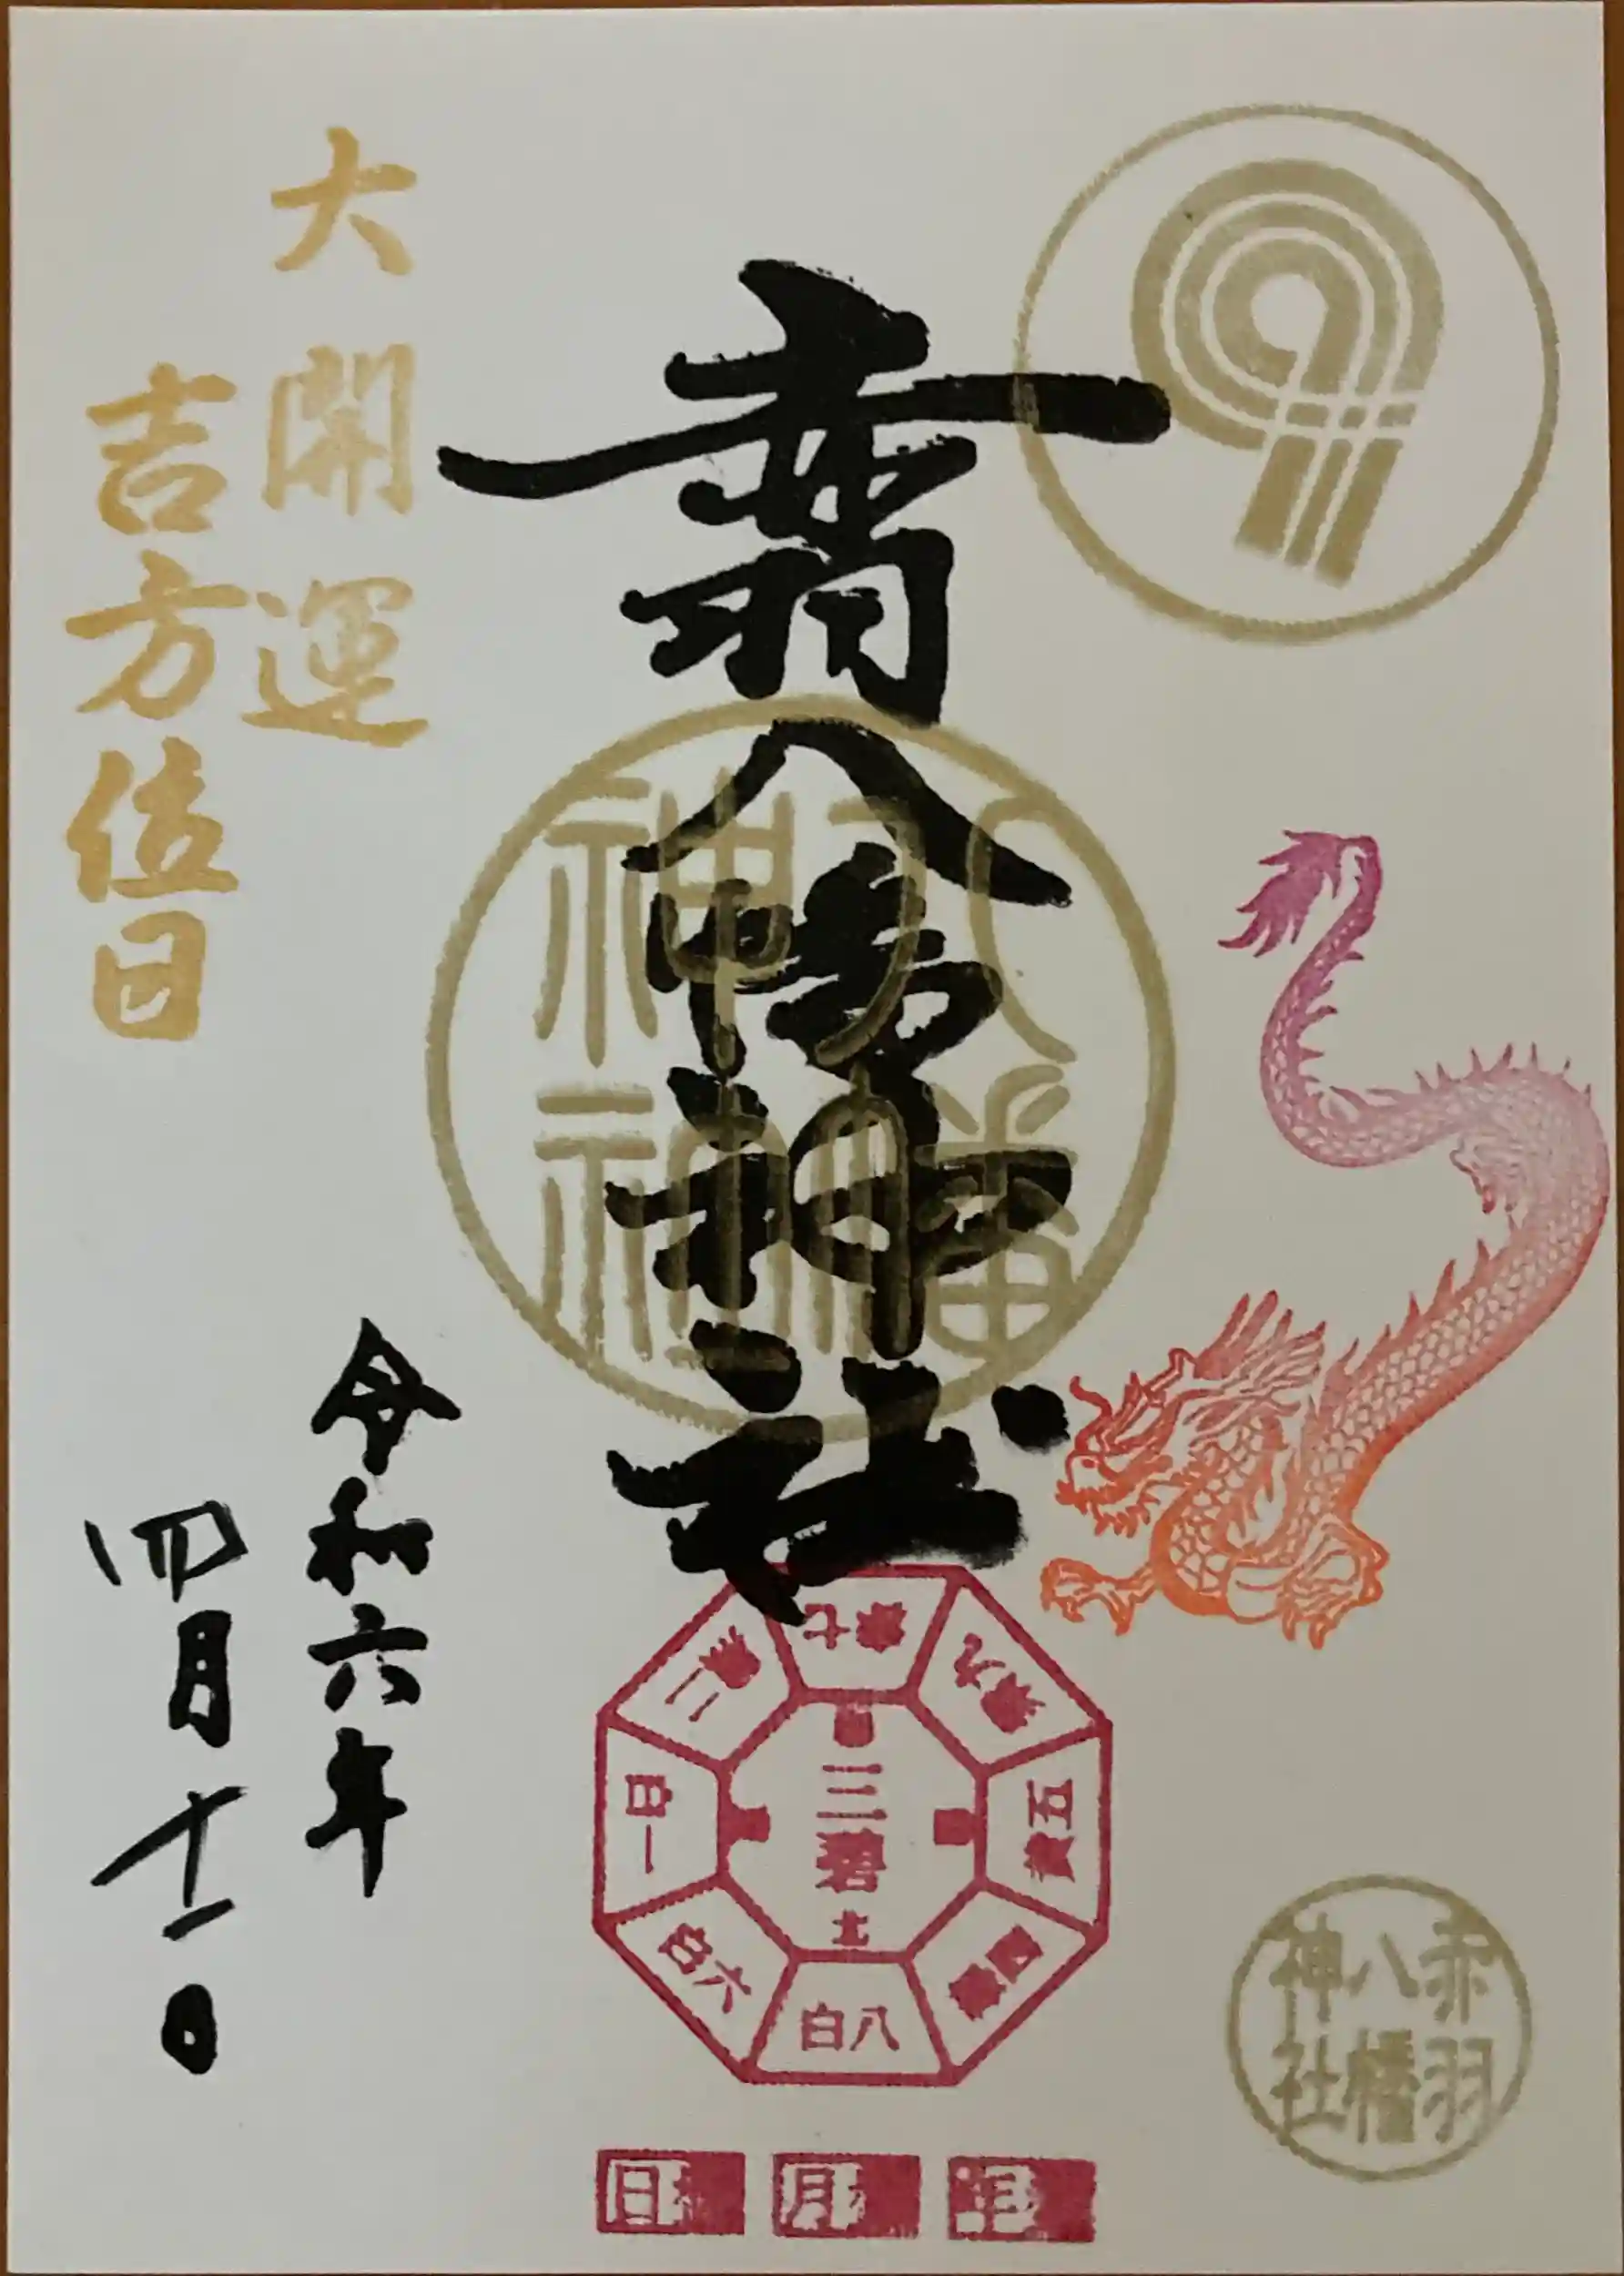 赤羽八幡神社
八幡神社
赤羽
八幡
神社
七赤
九紫
五黄
四緑
八白
六白
一白
二黒
三碧
北
大開運
吉方位日
令和六年
四月十一日